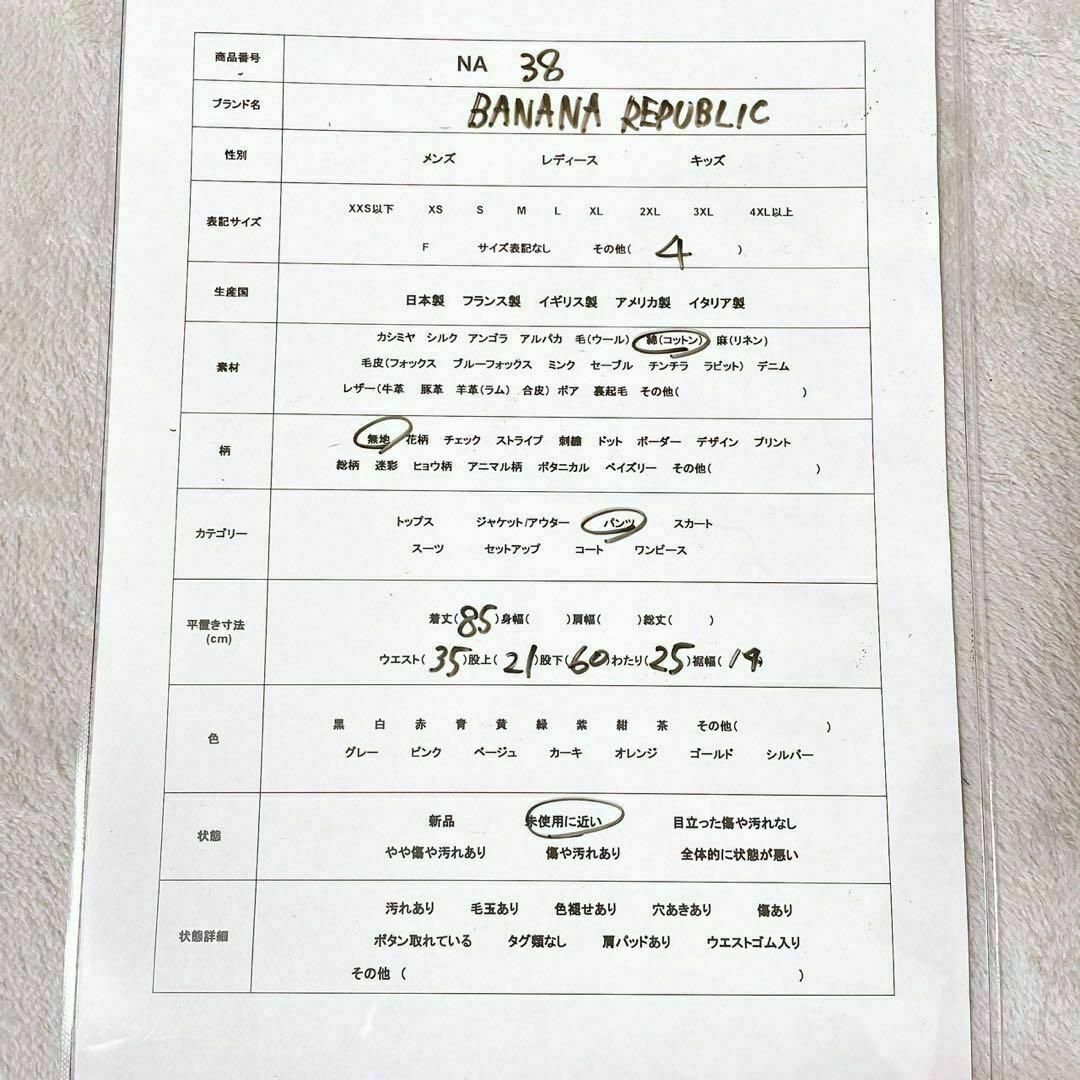 商品番号 NA 38
ブランド名 BANANA REPUBLIC
性別 メンズ レディース キッズ
表記サイズ XXS以下 XS S M L XL 2XL 3XL 4XL以上
F サイズ表記なし その他( 4 )
生産国 日本製 フランス製 イギリス製 アメリカ製 イタリア製
素材 カシミヤ シルク アンゴラ アルパカ 毛(ウール) 綿(コットン) 麻(リネン)
毛皮(フォックス ブルーフォックス ミンク セーブル チンチラ ラビット) デニム
レザー(牛革 豚革 羊革(ラム) 合皮) ボア 裏起毛 その他( )
柄 無地 花柄 チェック ストライプ 刺繍 ドット ボーダー デザイン プリント
総柄 迷彩 ヒョウ柄 アニマル柄 ボタニカル ペイズリー その他( )
カテゴリー トップス ジャケット/アウター パンツ スカート
スーツ セットアップ コート ワンピース
平置き寸法
(cm)
着丈(85)身幅( )肩幅( )総丈( )
ウエスト(35)股上(21)股下(60)わたり(25)裾幅(14)
色 黒 白 赤 青 黄 緑 紫 紺 茶 その他( )
グレー ピンク ベージュ カーキ オレンジ ゴールド シルバー
状態 新品 未使用に近い 目立った傷や汚れなし
やや傷や汚れあり 傷や汚れあり 全体的に状態が悪い
状態詳細 汚れあり 毛玉あり 色褪せあり 穴あきあり 傷あり
ボタン取れている タグ類なし 肩パッドあり ウエストゴム入り
その他 ( )